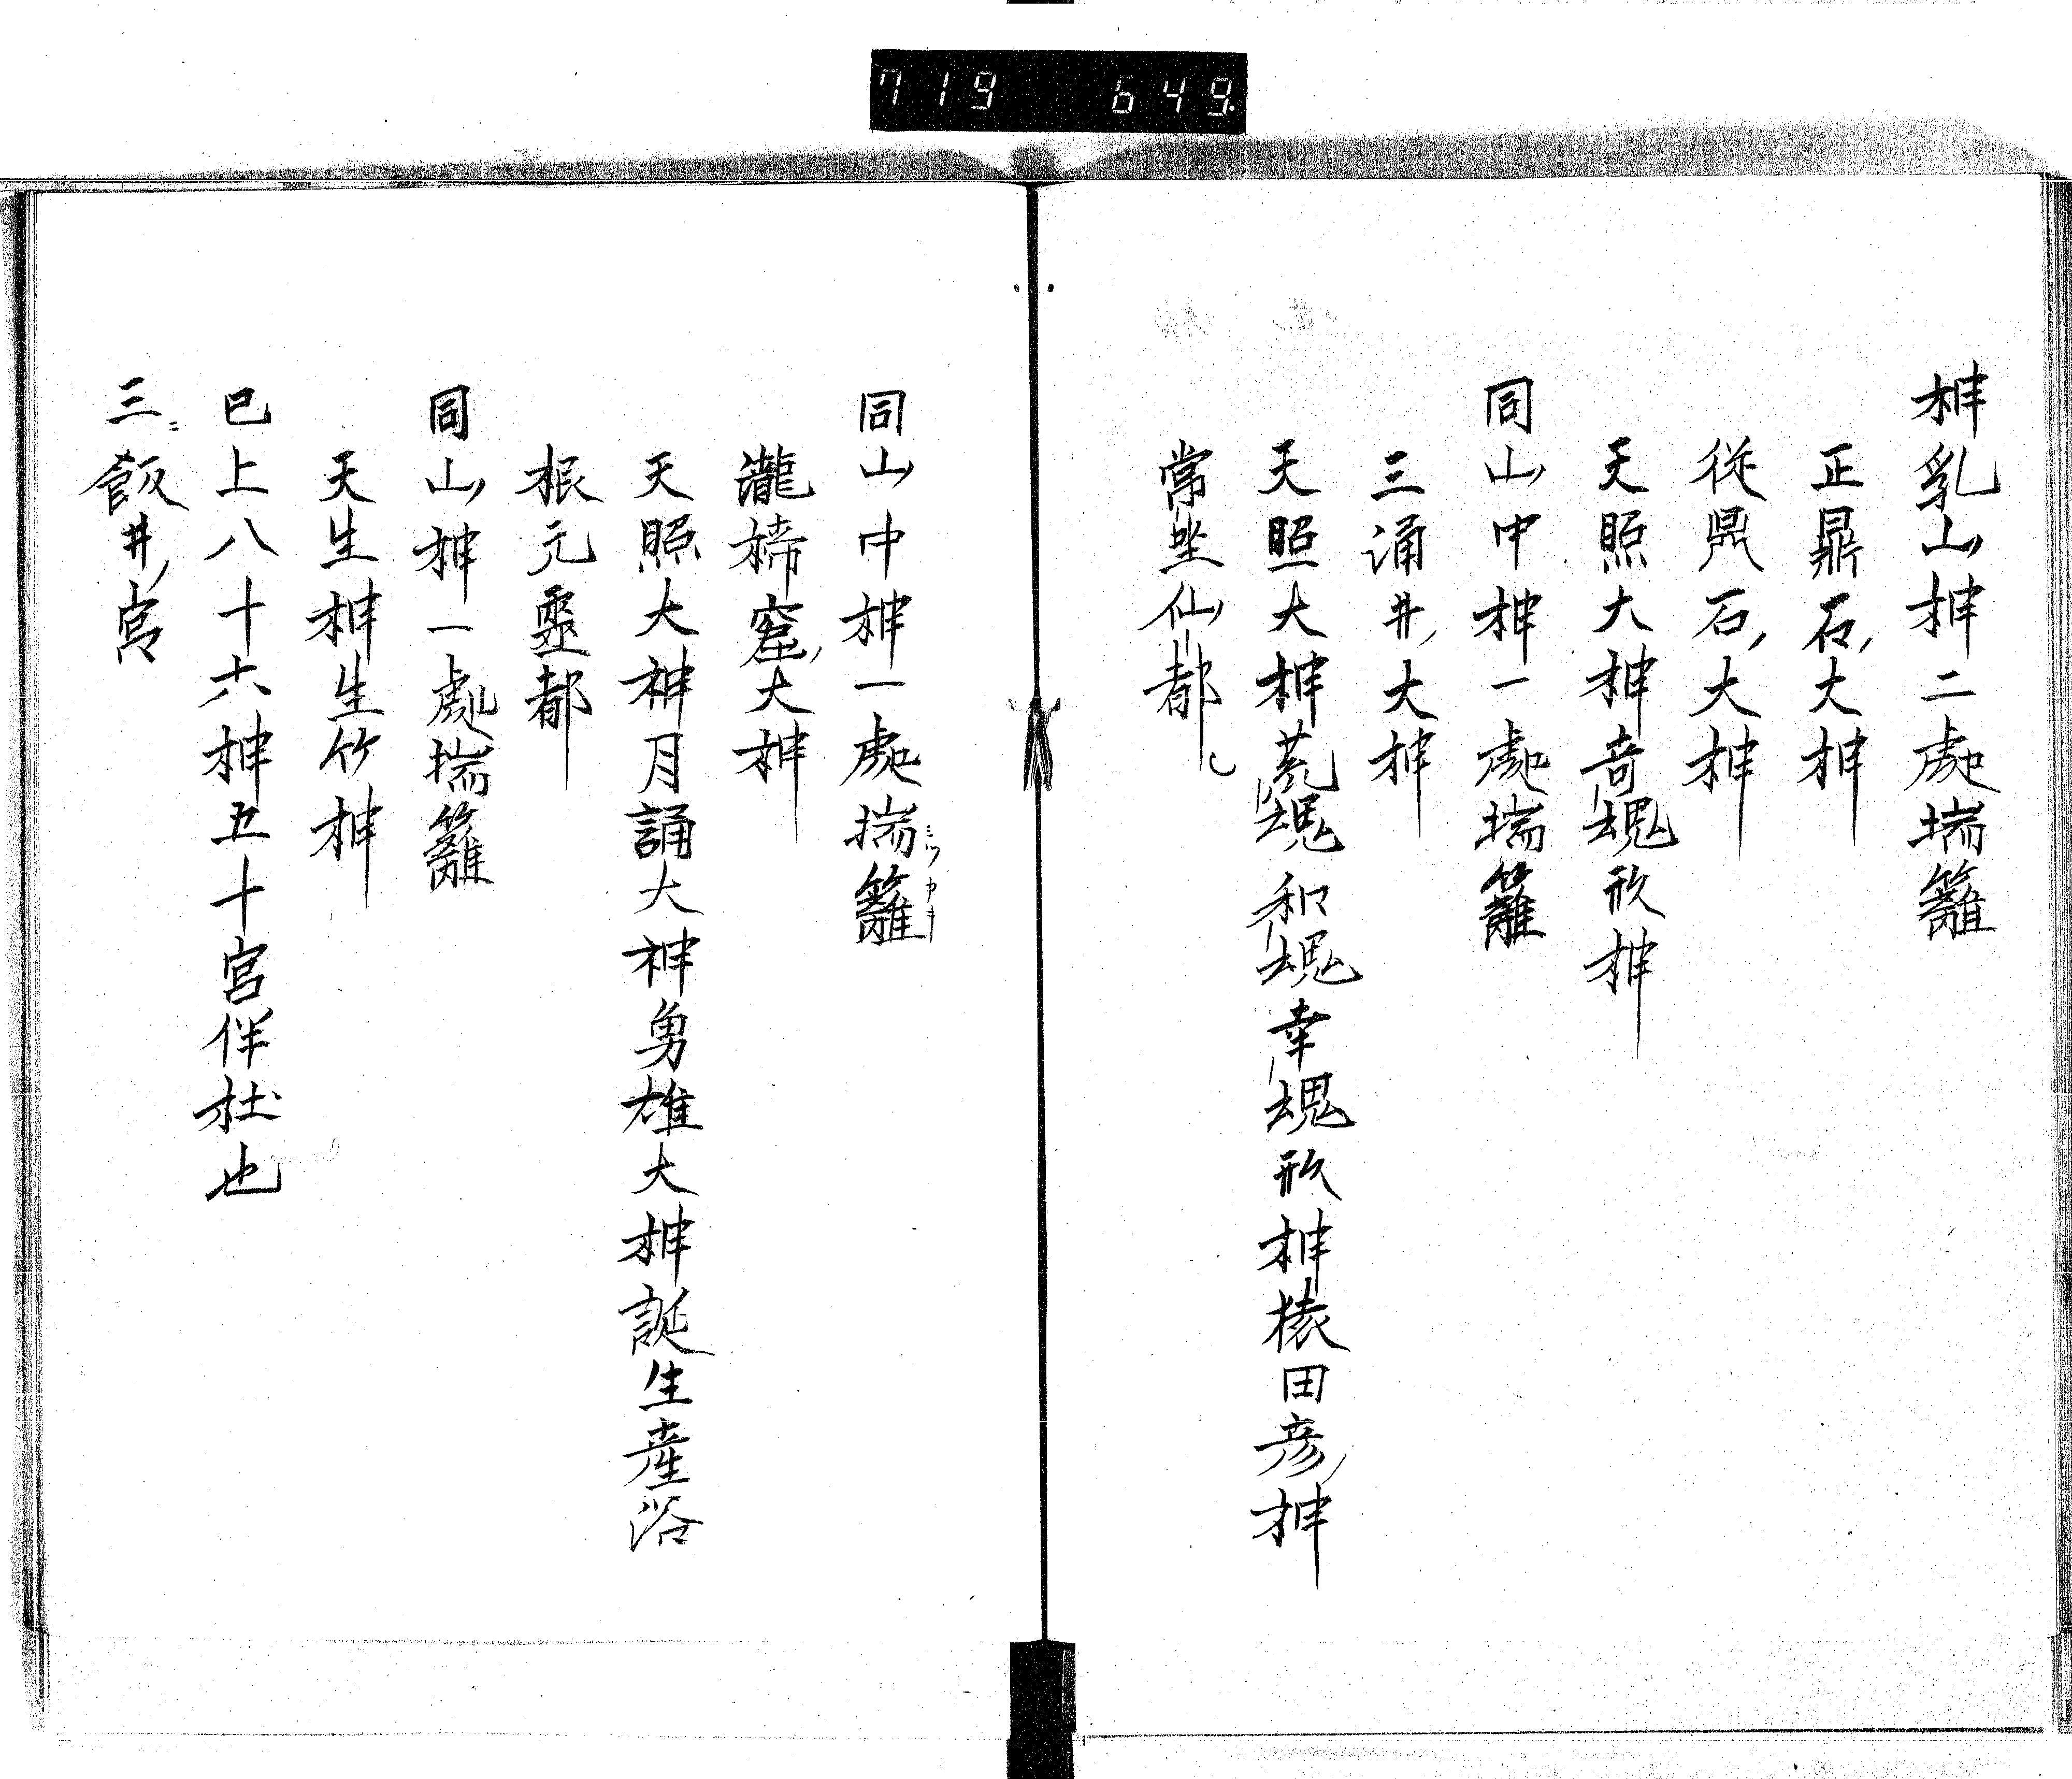 719 649
神乳山神二處瑞籬
正鼎石大神
従鼎石大神
天照大神奇魂形神
同山中神一處瑞籬
三涌井大神
天照大神荒魂和魂幸魂形神猿田彦神
常坐仙都
同山中神一處瑞籬
瀧 窟大神
天照大神月誦大神勇雄大神誕生産浴
根元靈都
同山神一處瑞籬
天生神生竹神
已上八十六神五十宮伴社也
三飯井宮